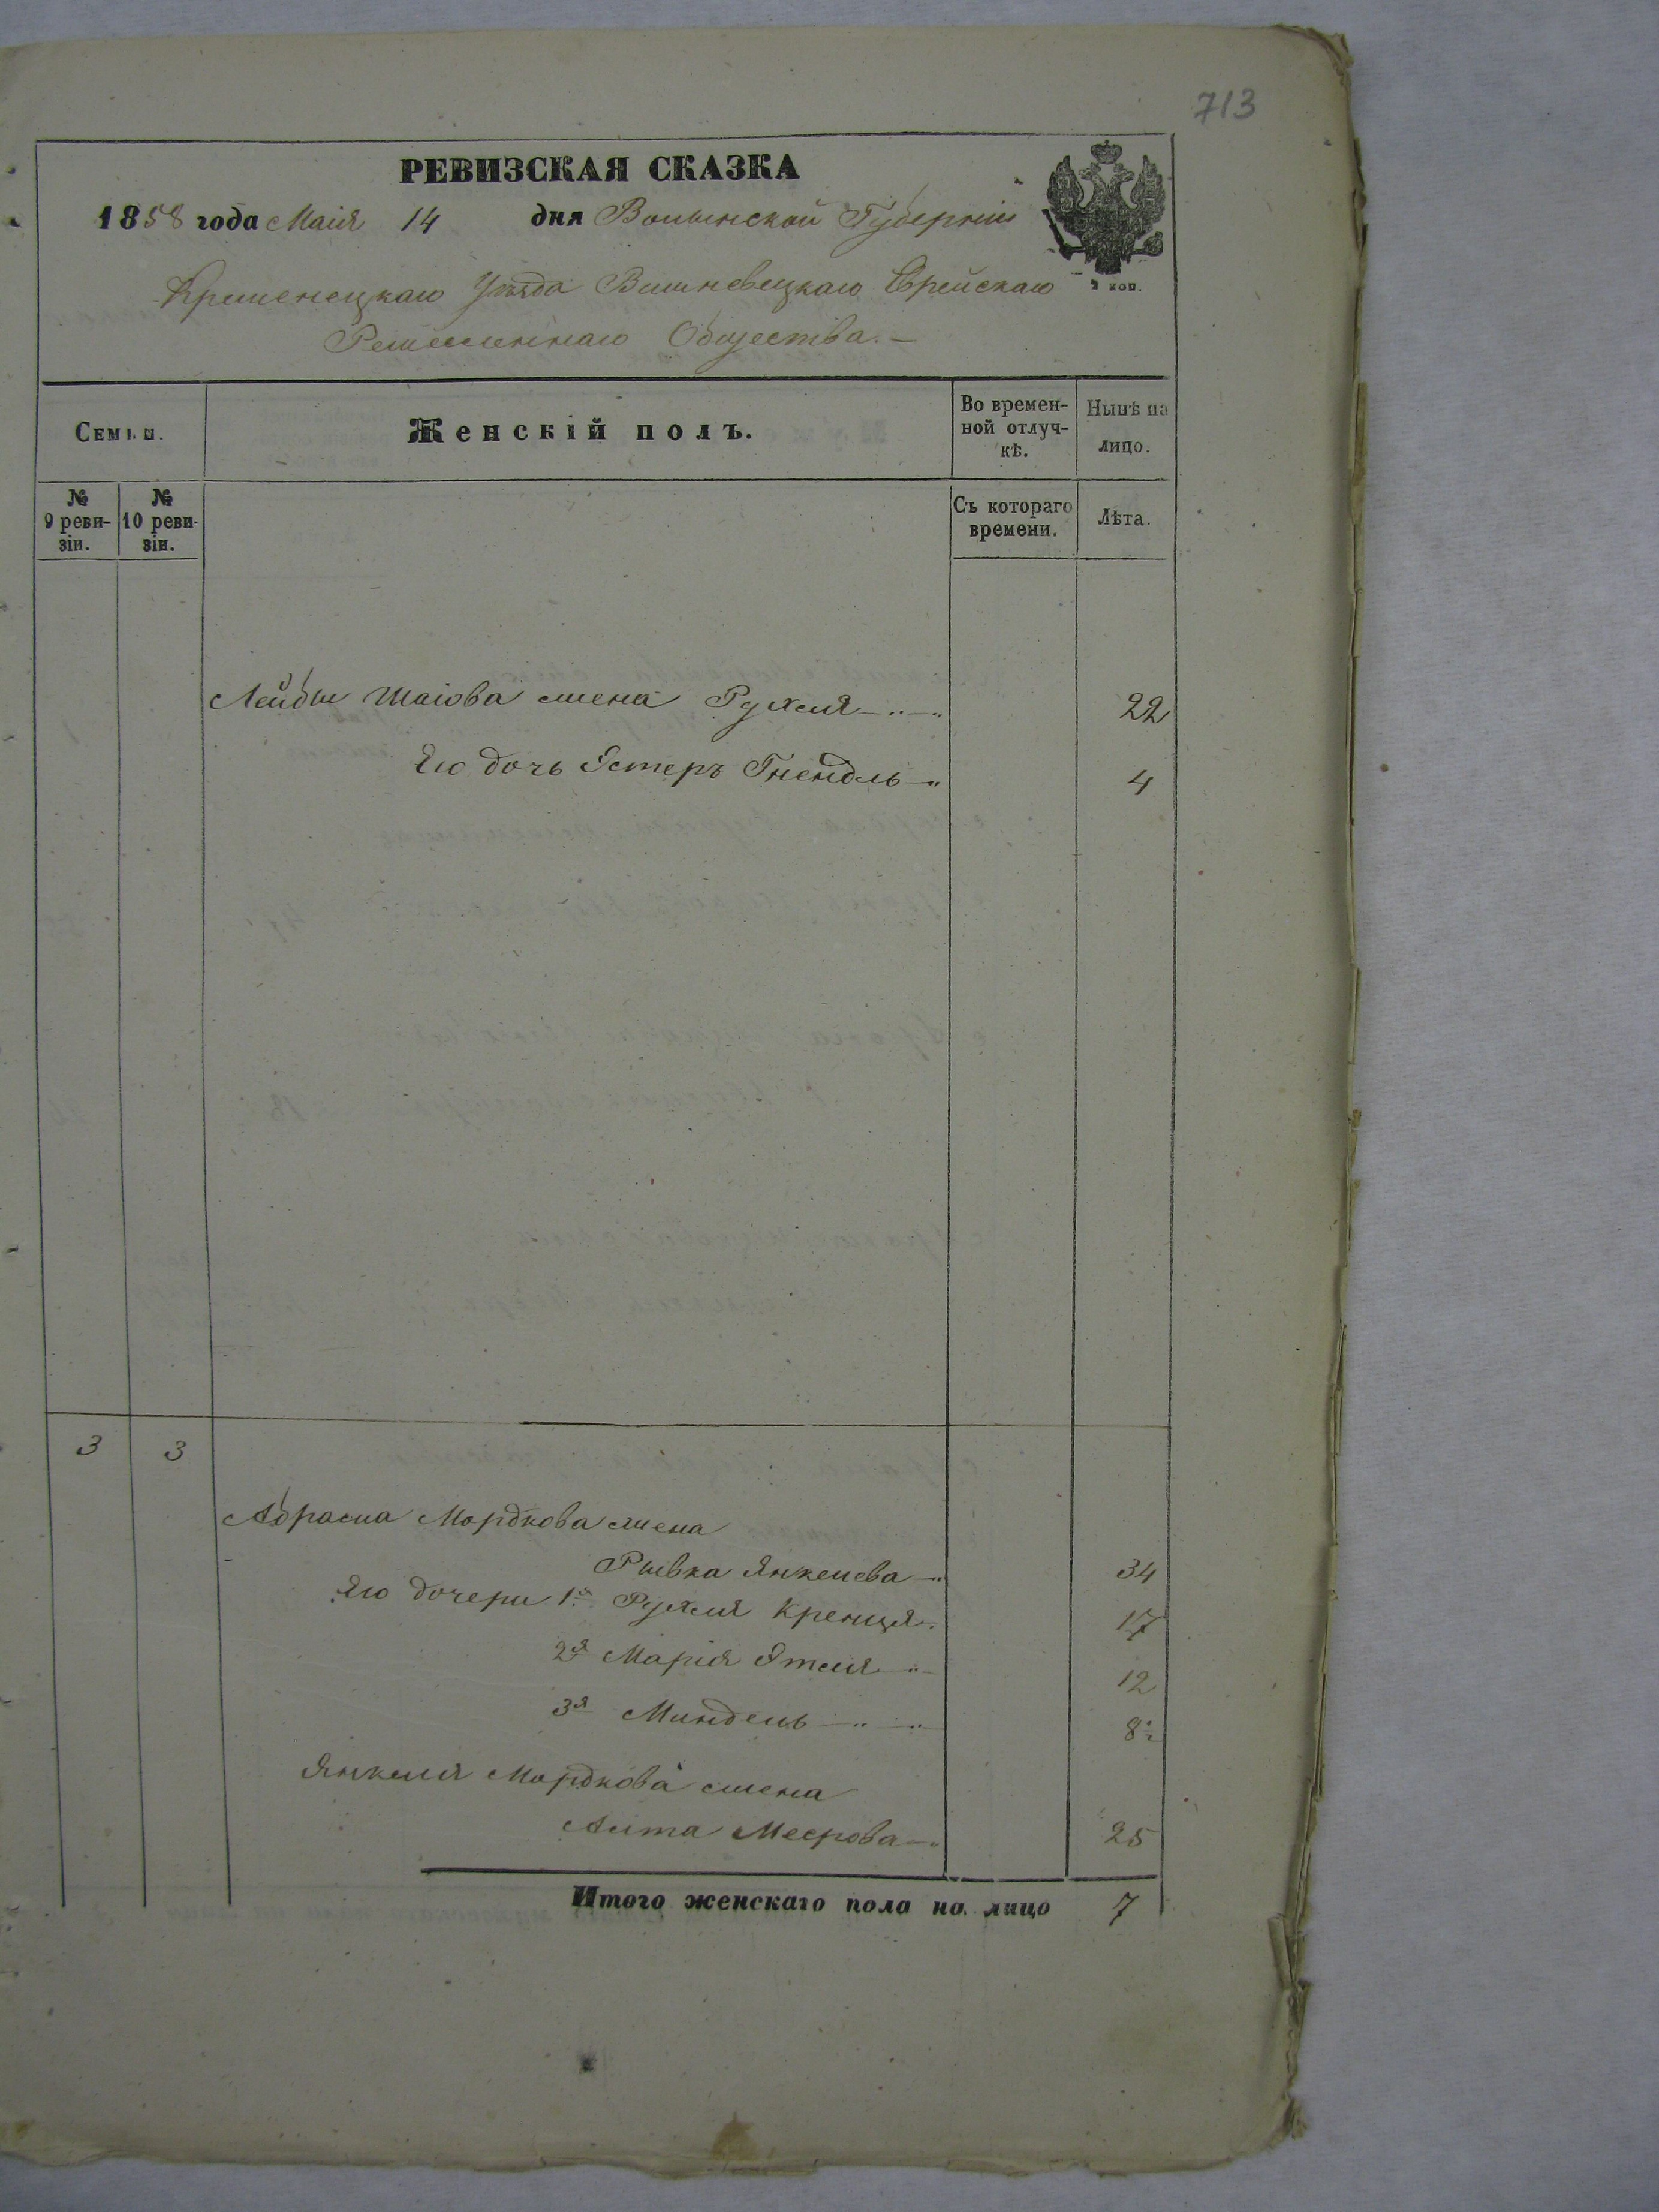 713
РЕВИЗСКАЯ СКАЗКА
1858 года Маія 14 дня Волынской Губерніи
Кременецкаго Уѣзда Вишневецкаго Еврейскаго
2 коп.
Ремесленнаго Общества.—
Семьи.
Женскій полъ.
Во времен-
ной отлуч-
кѣ.
Нынѣ на
лицо.
№
9 реви-
зіи.
№
10 реви-
зіи.
Съ котораго
времени.
Лѣта.
Лейбы Шаіова жена Рухля 22
Его дочь Эстеръ Гнендль 4
3 3
Абрама Мордкова жена
Рывка Янкелева 34
Его дочери 1я Рухля Кренця 17
2я Марія Этля 12
3я Миндель 8
Янкеля Мордкова жена
Алта Меерова 25
Итого женскаго пола на лицо 7